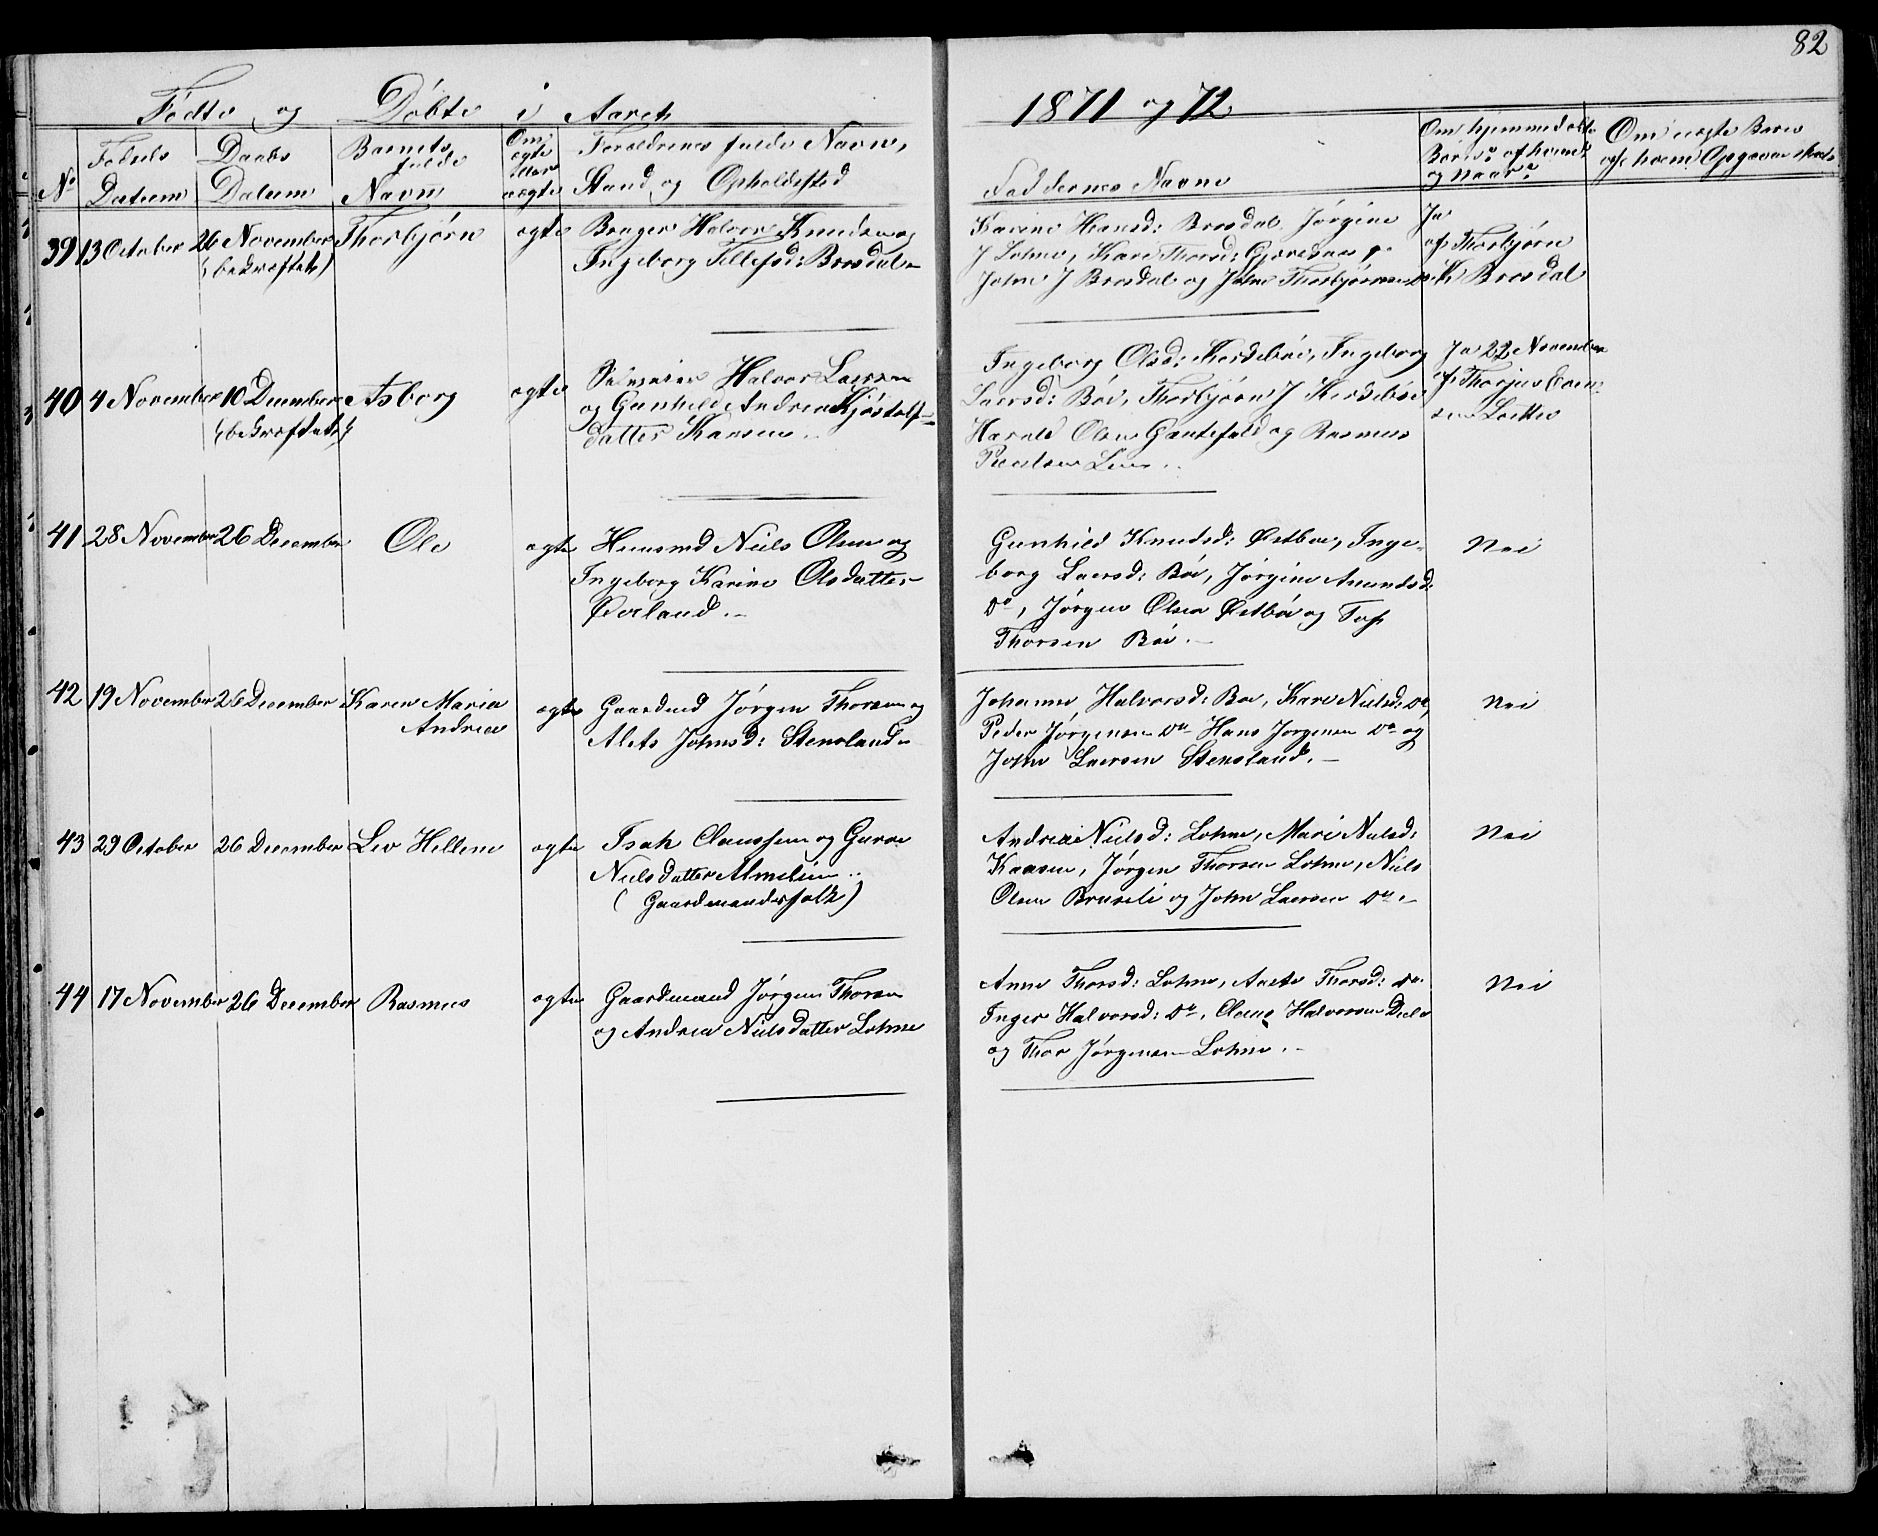 82
Fødte og Døbte i Aaret 1871 og 72
No
Fødsels Datum
Daabs Datum
Barnets fulde Navn
Om ægte eller uægte
Forældrenes fulde Navn, Stand og Opholdssted
Faddernes Navne
Om hjemmedøbte Børn? af hvem? og naar?
Om uægte Børn
39 13 October 26 November Thorbjørn ægte Bruger Halvor Knudsen og
(bekræftet)
Ingeborg Tellefsd: Brosdal
Karine Hansd: Brosdal, Jørgine
J Lohne, Kari Thorsd:
John J Brosdal og John Thorbjørnsen
Ja
af Thorbjørn
K Brosdal
40 4 November 10 December Asborg ægte Halvor Larsen
(bekræftet)
og Gunhild Andrea Kjøstolf-
datter Kaasen
Ingeborg Olsd: Kirkebøe, Ingeborg
Laersd: Bøe, Thorbjørn J Kirkebøe
Harald Olsen Gautefald og Rasmus
Paulsen
Ja 22 November
af Thorjus Even-
sen
41 28 November 26 December Ole ægte Huusmd Niels Olsen og
Ingeborg Karine Olsdatter
Øverland
Gunhild Knudsd: Østbøe, Inge-
borg Laersd: Bøe, Jørgine Amundsd:
Do, Jørgen Olsen Østbøe og
Thorsen Bøe
Nei
42 19 November 26 December Karen Maria
Andrea
ægte Gaardmd Jørgen Thorsen og
Alets Johnsd: Stensland
Johanne Halvorsd: Bøe, Kari Nielsd: Do
Peder Jørgensen Do Hans Jørgensen Do og
John Laersen Stensland.
Nei
43 29 October 26 December Lev Hellene ægte Isak Claussen og Guroe
Nielsdatter Almelien
(Gaardmandsfolk)
Andrea Nielsd: Lohne, Mari Nielsd:
Kaasen, Jørgen Thorsen Lohne, Niels
Olsen Bruseli og John Laersen Do
Nei
44 17 November 26 December Rasmus ægte Gaardmand Jørgen Thorsen
og Andrea Nielsdatter Lohne
Anne Thorsd: Lohne, Thorsd: Do
Inger Halvorsd: Do, Claus Halvorsen
og Thor Jørgensen Lohne.
Nei